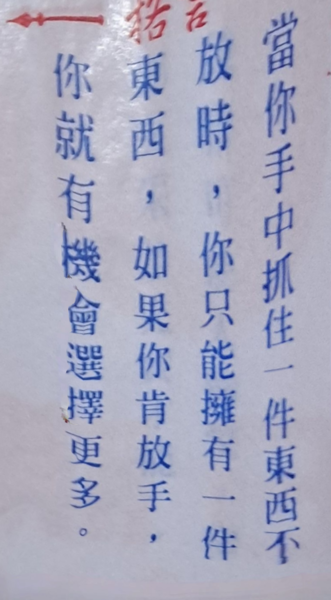 當你手中抓住一件東西不
放時，你只能擁有一件
東西，如果你肯放手，
你就有機會選擇更多。